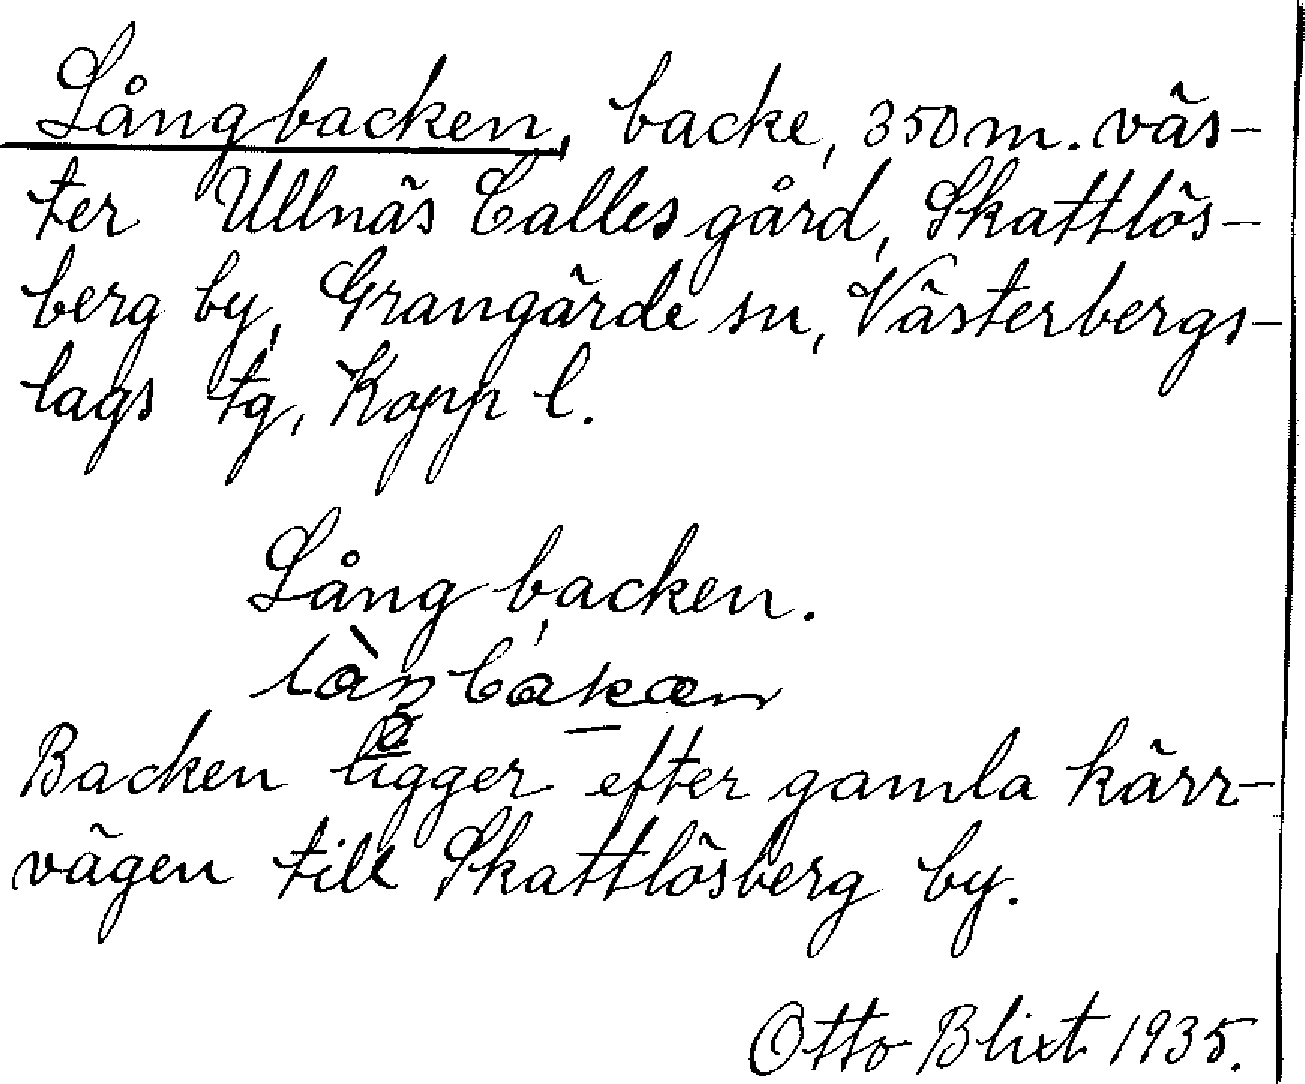 Långbacken, backe, 350 m. väs-
ter Ullnäs Calles gård, Skattlös-
berg by, Grangärde sn, Västerbergs-
lags tg, Kopp l.
Lång backen.
Backen ligger efter gamla kärr-
vägen till Skattlösberg by.
Otto Blixt 1935.